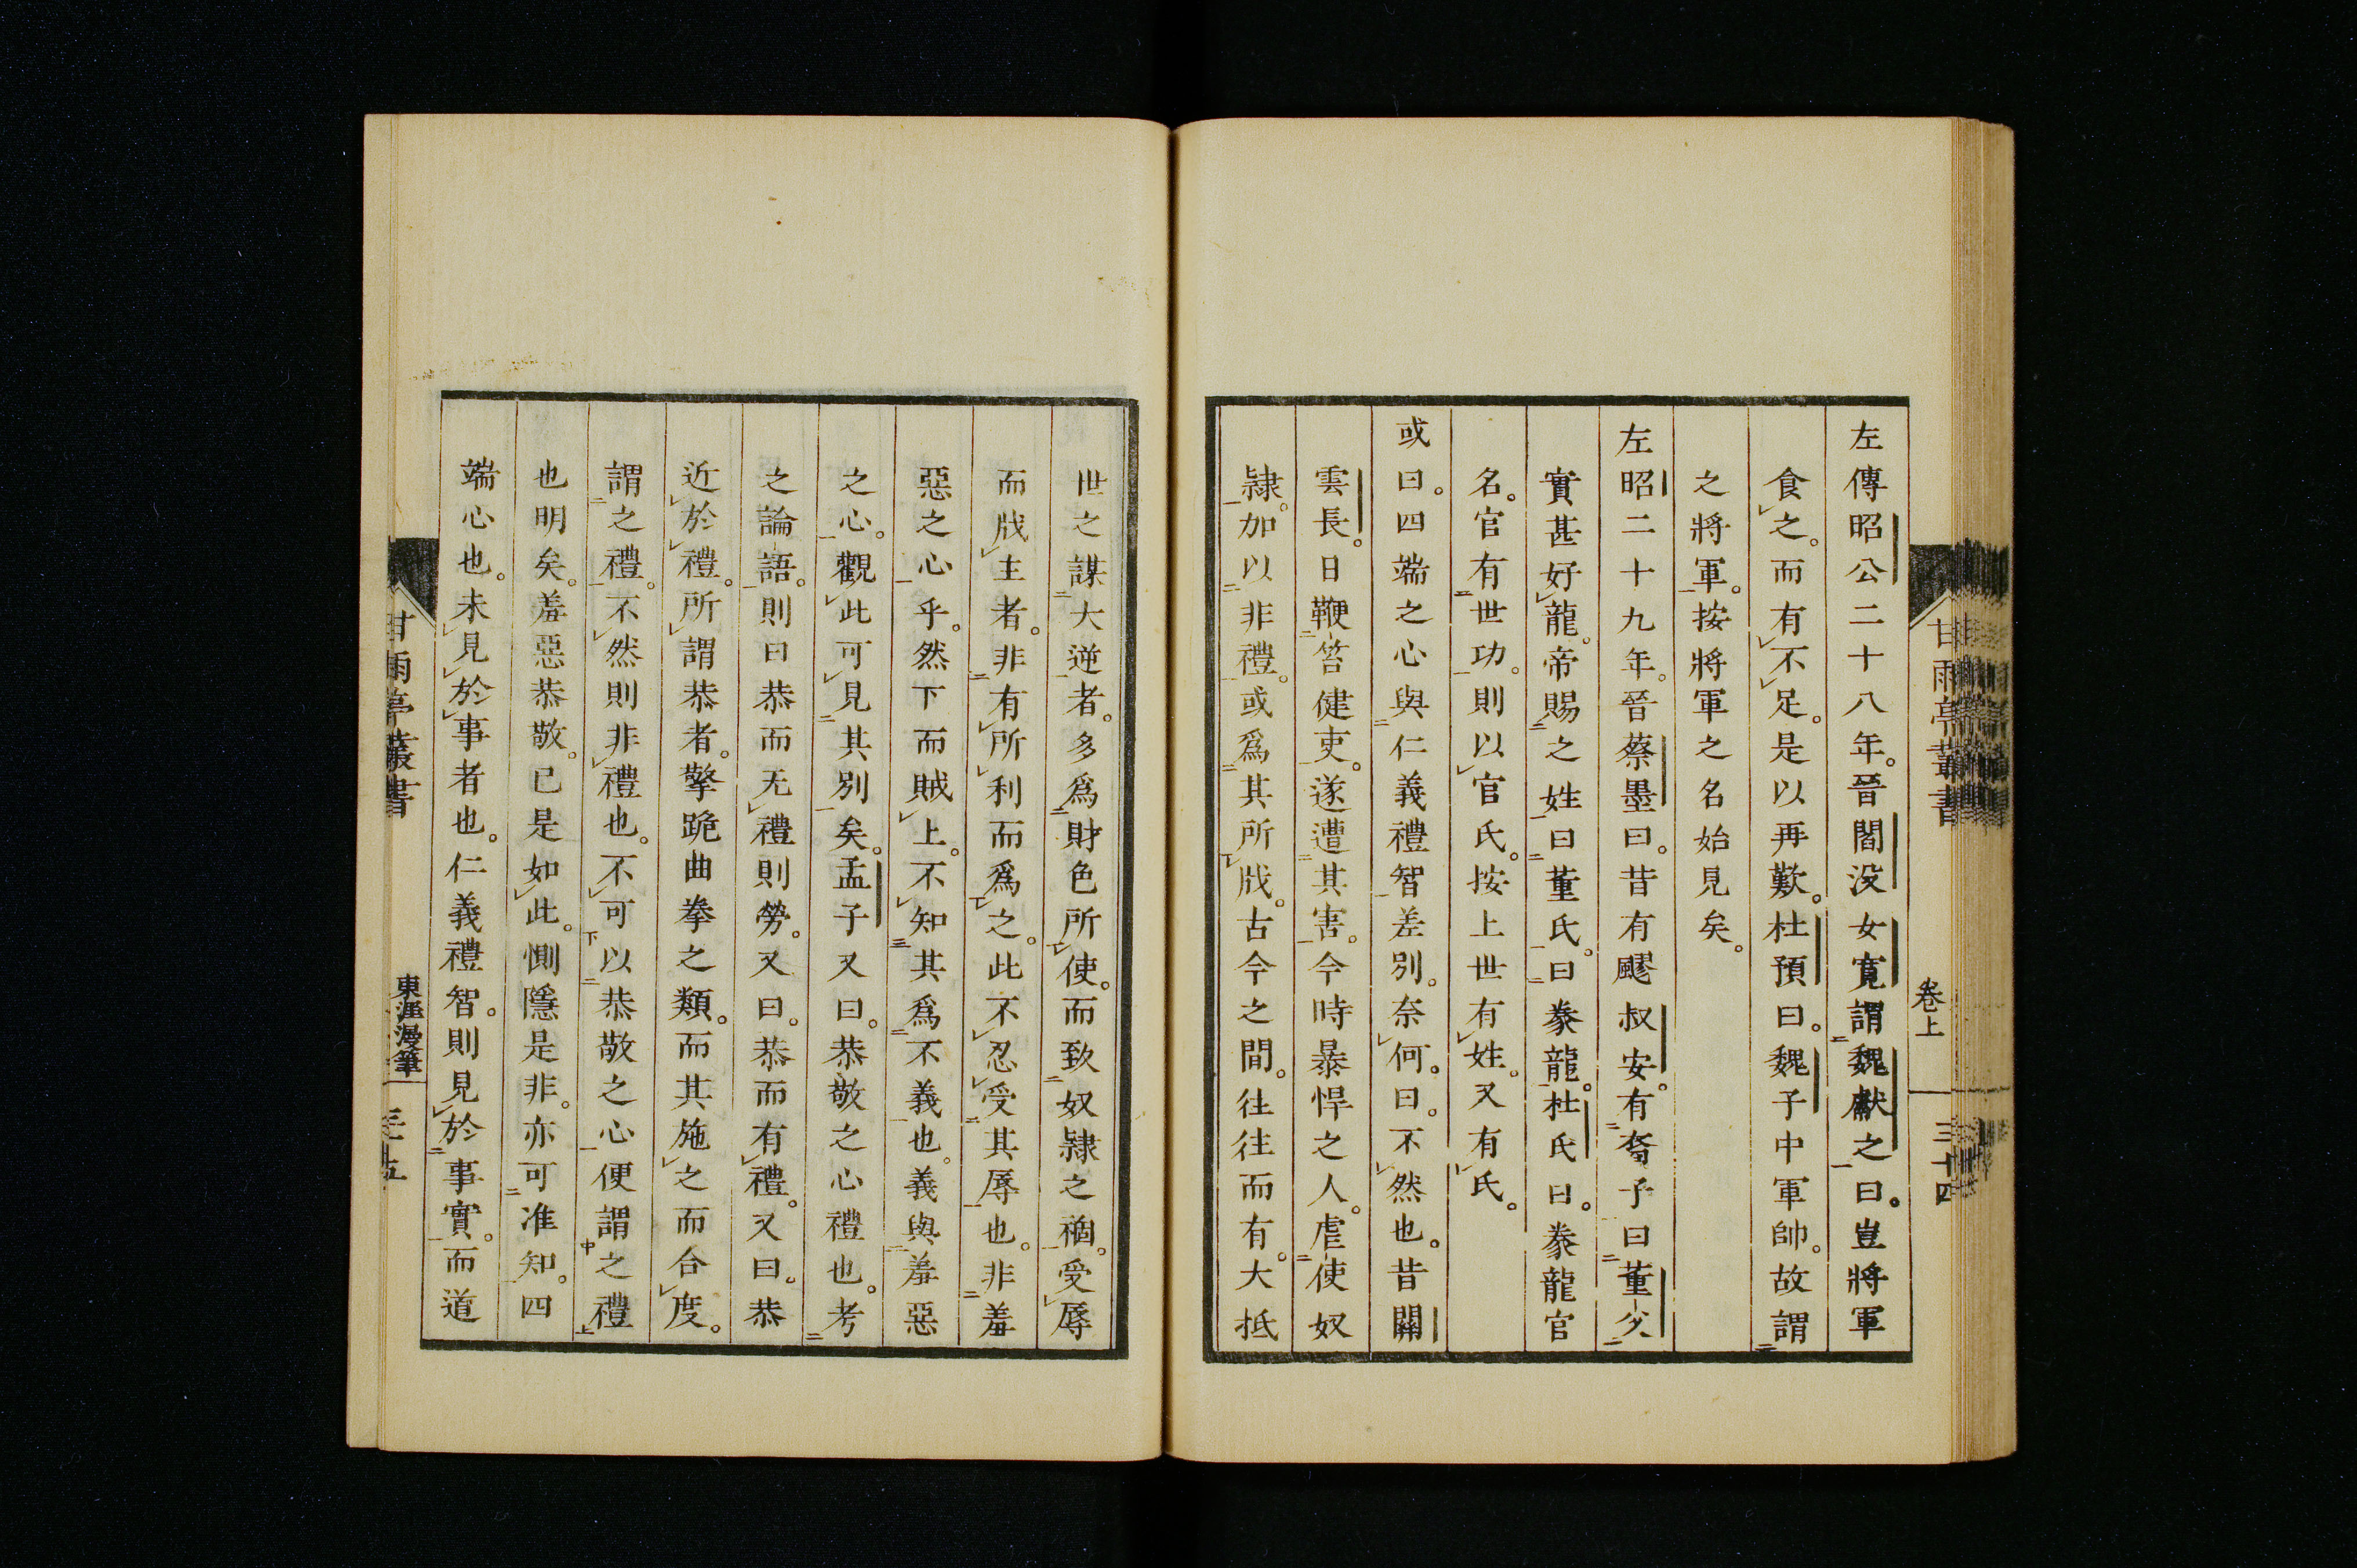 左傳昭公二十八年。晉閻没女寬謂魏獻之曰。豈將軍
食之。而有不足。是以再歎。杜預曰。魏子中軍帥。故謂
之將軍。按將軍之名始見矣。
左昭二十九年。晉蔡墨曰。昔有飂叔安。有裔子曰董父
實甚好龍。帝賜之姓曰董氏。曰豢龍。杜氏曰。豢龍官
名。官有世功。則以官氏。按上世有姓。又有氏。
或曰。四端之心與仁義禮智差別。奈何。曰。不然也。昔關
雲長。日鞭笞健吏。遂遭其害。今時暴悍之人。虐使奴
隷。加以非禮。或爲其所戕。古今之間。往往而有。大抵
甘雨亭叢書
卷上
三十四
世之謀大逆者。多爲財色所使。而致奴隷之禍。受辱
而戕主者。非有所利而爲之。此不忍受其辱也。非羞
惡之心乎。然下而賊上。不知其爲不義也。義與羞惡
之心。觀此可見其別矣。孟子又曰。恭敬之心禮也。考
之論語。則曰恭而无禮則勞。又曰。恭而有禮。又曰。恭
近於禮。所謂恭者。擎跪曲拳之類。而其施之而合度。
謂之禮。不然則非禮也。不可以恭敬之心便謂之禮
也明矣。羞惡恭敬。已是如此。惻隱是非。亦可准知。四
端心也。未見於事者也。仁義禮智。則見於事實。而道
甘雨亭叢書
東涯漫筆
三十五